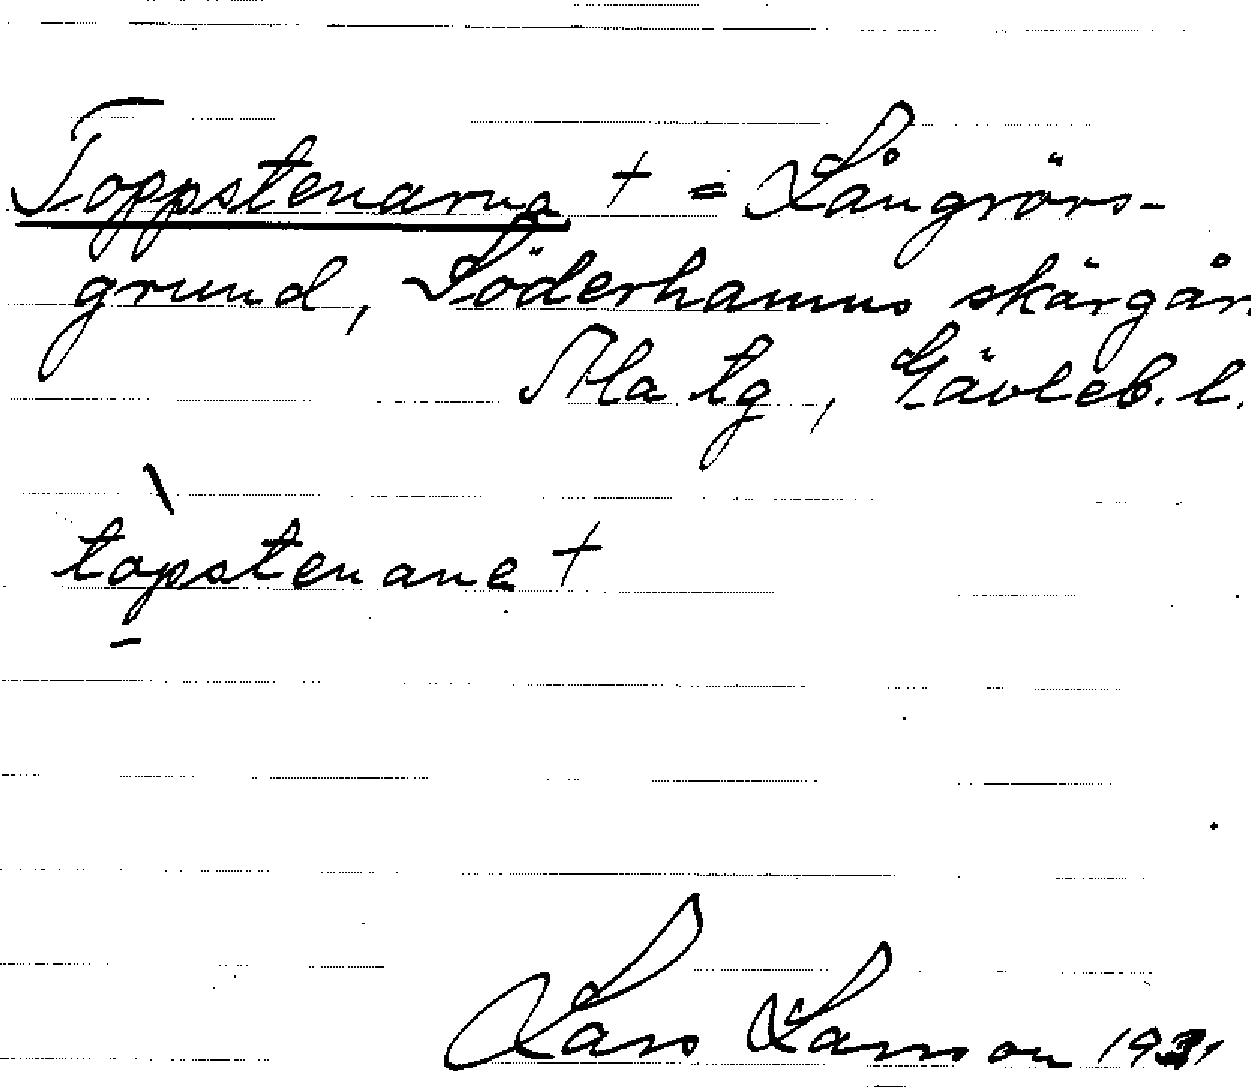 Toppstenarna + = Långrörs-
grund, Söderhamns skärgår
Ala tg, Gävleb. l.
tòpstenane +
Lars Larsson 1931